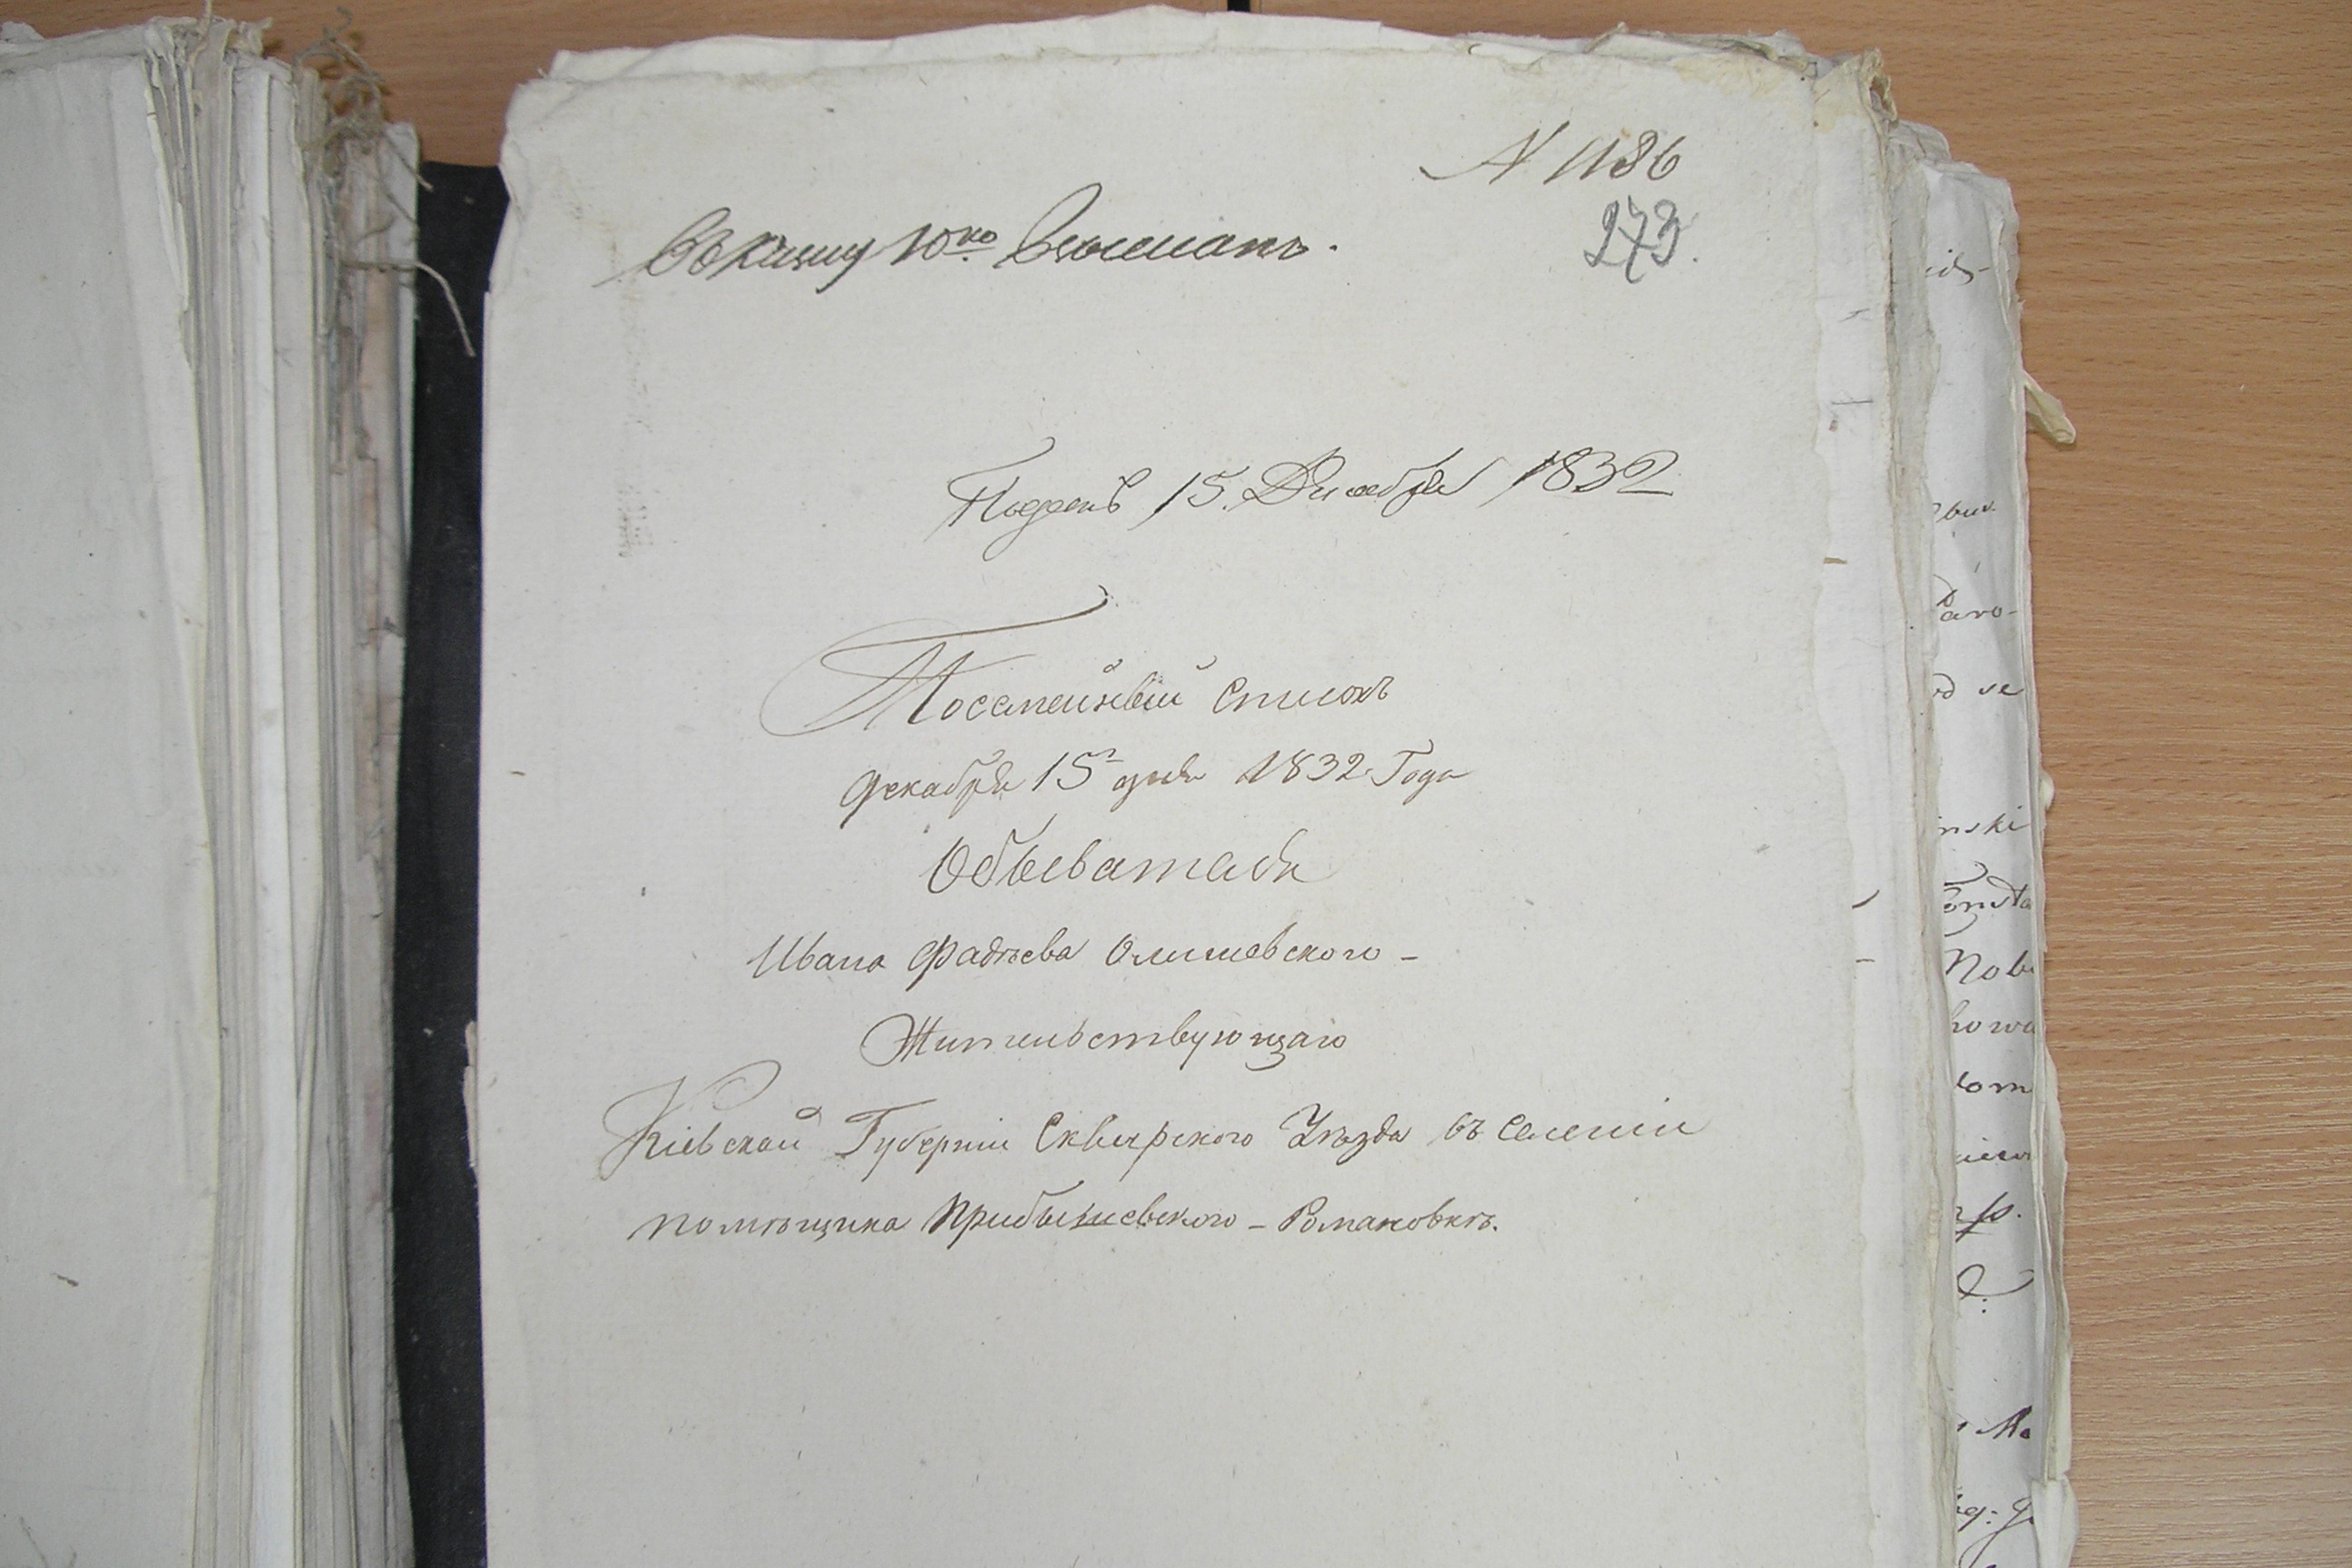 N 1186
273.
Въ книгу 10ю
Подана 15. Декабря 1832
Посемейный списокъ
декабря 15 дня 1832 Года
Обывателя
Ивана Фадѣева Олишевского -
Жительствующаго
Кіевской Губерніи Сквирского Уѣзда въ Селеніи
помѣщика Прибышевского - Романовкѣ.